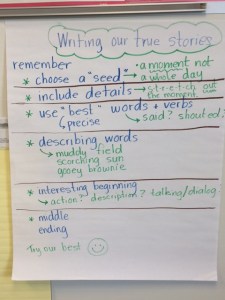 Writing our true stories
remember
* choose a "seed" → • a moment not
• a whole day
* include details → s-t-r-e-t-c-h out
the moment
* use "best" words + verbs
↳ precise → said? shouted?
* describing words
↳ muddy field
scorching sun
gooey brownie
* interesting beginning
↳ action? description? talking/dialog
* middle
ending
Try our best